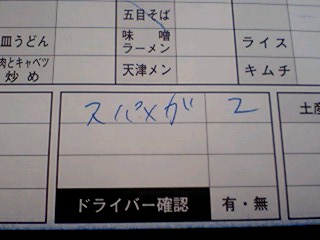 五目そば
皿うどん 味噌ラーメン ライス
肉とキャベツ炒め 天津メン キムチ
スパメガ 2
土産
ドライバー確認 有・無